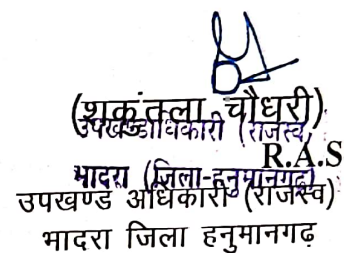 (शकुंतला चौधरी)
उपखण्ड अधिकारी (राजस्व)
R.A.S
भादरा (जिला-हनुमानगढ़)
उपखण्ड अधिकारी (राजस्व)
भादरा जिला हनुमानगढ़